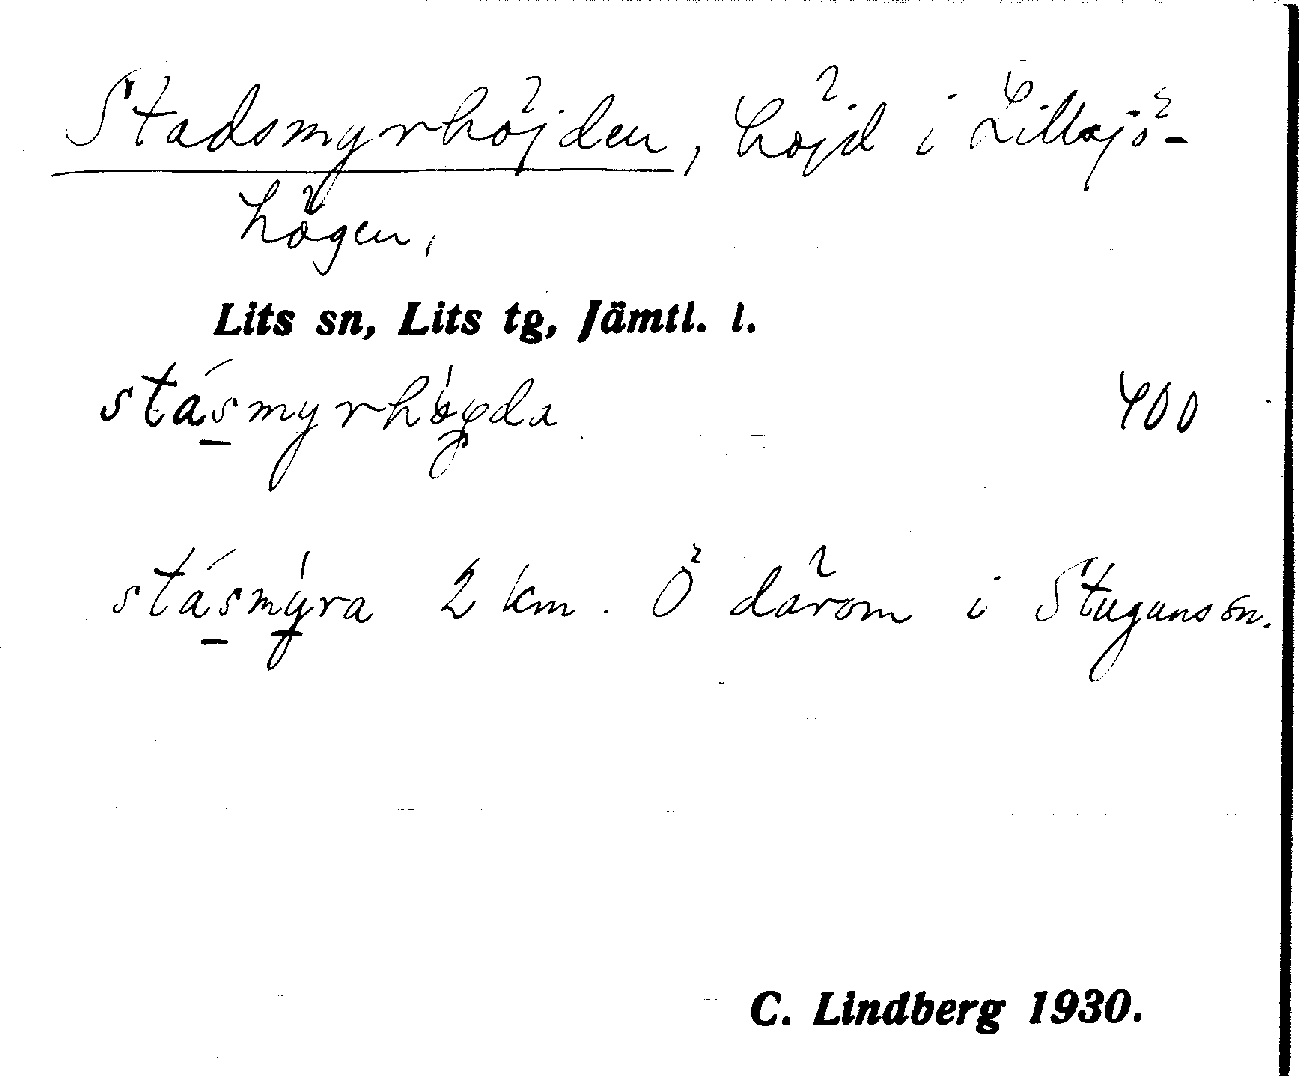 Stadsmyrhöjden, höjd i Lillsjö-
högen,
Lits sn, Lits tg, Jämtl. l.
stásmyrhøgda 400
stásmýra 2 km. Ö därom i Stuguns sn.
C. Lindberg 1930.